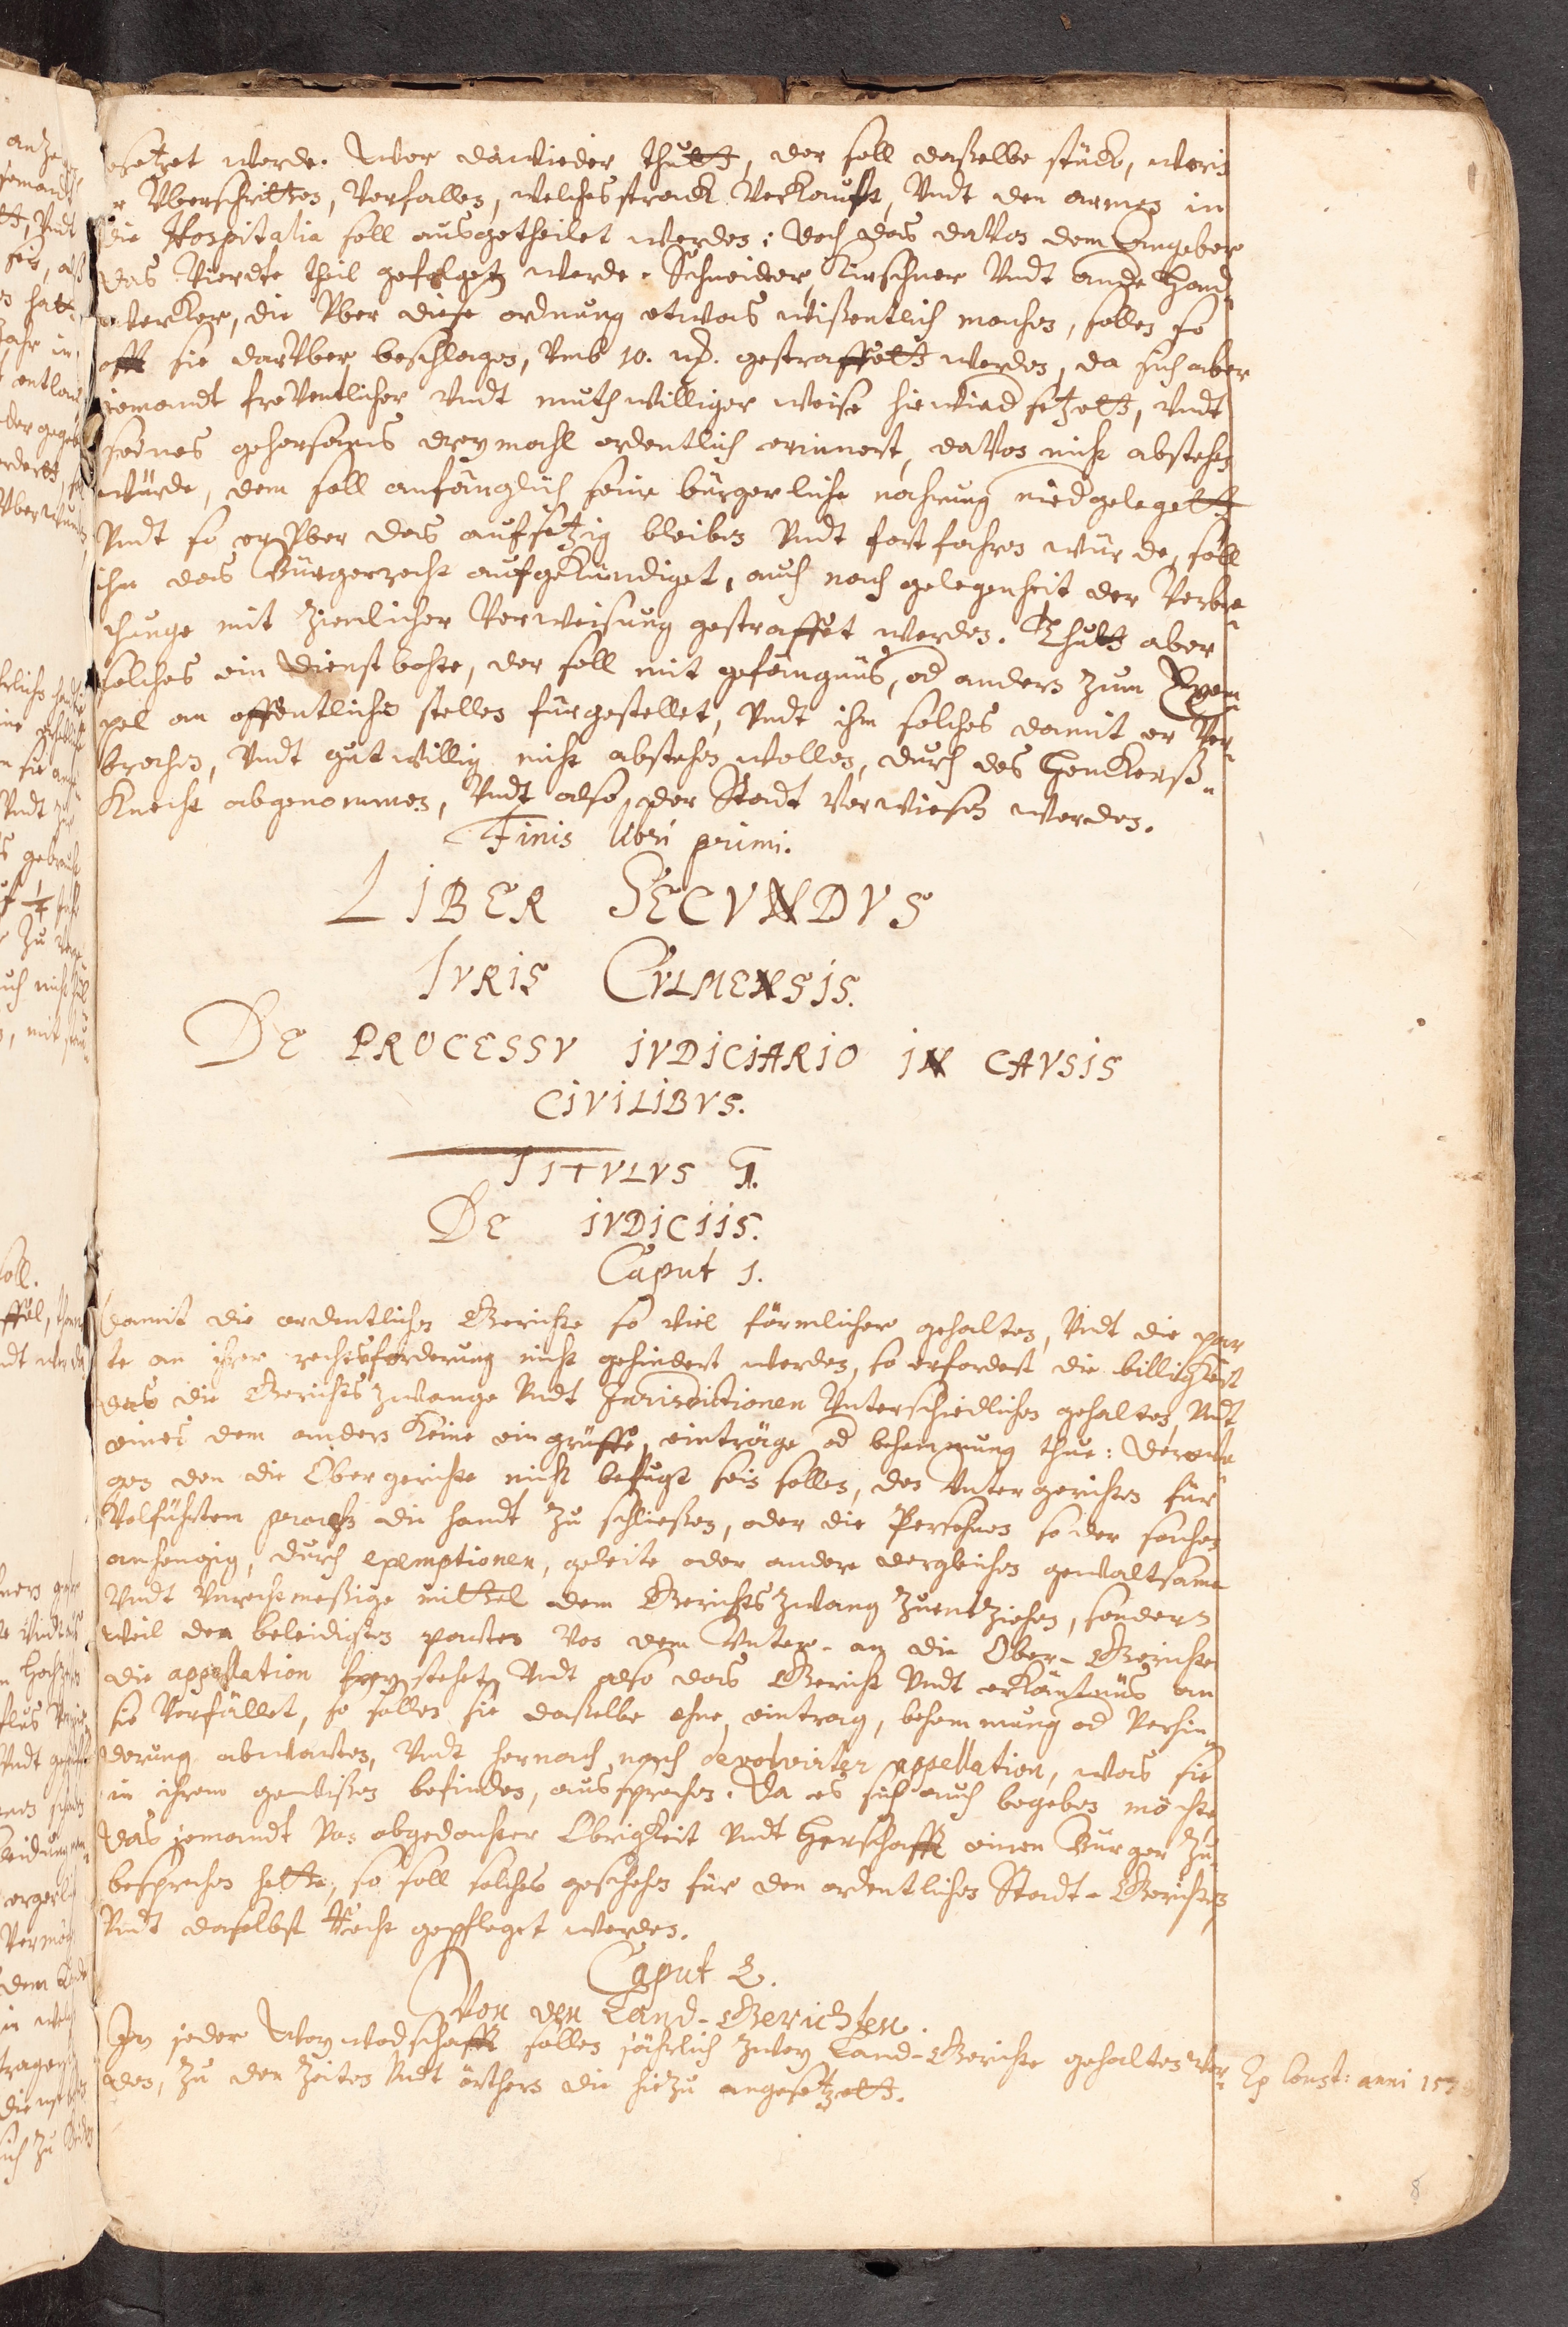 gesetzet werde. Wer dawieder thutt, der soll daßelbe stück, worin
er Vberschritten, Verfallen, welches strack Verkaufft, Vndt den armen in
die Hospitalia soll ausgetheilet werden: doch das davon dem Angeber
das Vierdte theil gefolget werde. Schneider, Kürschner Vndt andr Hand-
wercker, die Vber diese ordnung etwas wißentlich machen, sollen so
offt sie darVber beschlagen, Vmb 10. mk. gestraffett werden, da sich aber
jemandt freVentlicher Vndt muthwilliger weise hiewied setzett, Vndt
seines gehorsams dreymahl ordentlich erinnert, daVon nicht abstehen
würde, dem soll anfänglich seine bürgerliche nahrung niedgelegett
Vndt so er Vber das aufsetzig bleiben Vndt fortfahren würde, soll
ihm das Bürgerrecht aufgekündiget, auch nach gelegenheit der Verbre-
chunge mit ziemlicher Verweisung gestraffet werden. Thutt aber
solches ein Dienstbothe, der soll mit gefängnüs, od anders zum Exem-
pel an offentlichen stellen fürgestellet, Vndt ihm solches damit er Ver-
brochen, Vndt gutwillig nicht abstehen wollen, durch des Henckerß-
Knecht abgenommen, Vndt also der Stadt Verwiesen werden.
Finis libri primi.
LIBER SECVNDVS
IVRIS CVLMENSIS.
DE PROCESSV IVDICIARIO IN CAVSIS
CIVILIBVS.
TITVLVS 1.
DE IVDICIIS.
Caput 1.
Damit die ordentlichen Gerichte so viel förmlicher gehalten, Vndt die par
te an ihrer rechtsforderung nicht gehindert werden, so erfordert die billigkeit
das die Gerichtszwange Vndt Jurisdictionen Vnterschiedlichen gehalten Vndt
eines dem andern keine eingrüffe, einträge od behemmung thue: derowe-
gen den die Obergerichte nicht befugt sein sollen, den Vntergerichten für
Volführtem process die handt zu schließen, oder die Persohnen so der sachen
anhengig, durch exemptionen, geleite oder andere dergleichen gewaltsame
Vndt Vnrechtmeßige mittel dem Gerichtszwang zuentziehen, sondern
weil den beleidigten parten Von dem Vnter- an die Ober-Gerichte
die appellation frey stehet, Vndt also das Gericht Vndt erkäntnüs an
sie Verfället, so sollen sie daßelbe ohne eintrag, behemmung od Verhin-
derung abwarten, Vndt hernach nach devolvirter appellation, was sie
in ihrem gewißen befinden, aussprechen. Da es sich auch begeben möchte
das jemandt Von obgedachter Obrigkeit Vndt Herschafft einen Bürger zu-
besprechen hette, so soll solches geschehen für den ordentlichen Stadt-Gerichten
Vndt daselbst Recht gepfleget werden.
Caput 2.
Von den Land-Gerichten.
In jeder Woywodschafft sollen jährlich zwey Land-Gerichte gehalten wer-
den, zu den zeiten Vndt örthern die hiezu angesetzett.
Ex Const: anni
8